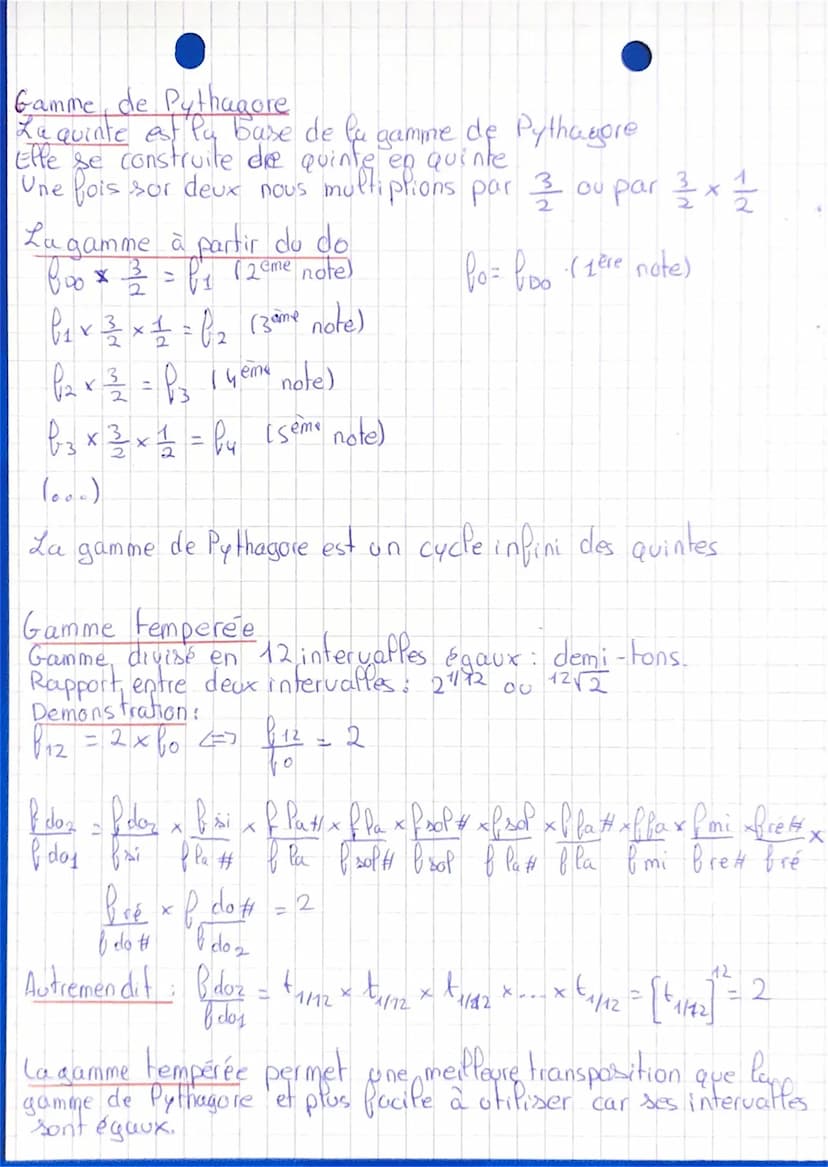 Gamme de Pythagore
La quinte est la base de la gamme de Pythagore
Elle se construite de quinte en quinte
Une fois sor deux nous multiplions par 3/2 ou par 3/2 × 1/2
La gamme à partir du do
fDO × 3/2 = f1 (2ème note) f0 = fDO (1ère note)
f1 × 3/2 × 1/2 = f2 (3ème note)
f2 × 3/2 = f3 (4ème note)
f3 × 3/2 × 1/2 = f4 (5ème note)
(...)
La gamme de Pythagore est un cycle infini des quintes
Gamme temperée
Gamme divisé en 12 intervalles égaux : demi-tons.
Rapport entre deux intervalles : 2^1/12 ou 12√2
Demonstration :
f12 = 2 × f0 <=> f12/f0 = 2
f do2/f do1 = f do2/f si × f si/f la # × f la #/f la × f la/f sol # × f sol #/f sol × f sol/f fa # × f fa #/f fa × f fa/f mi × f mi/f re # × f re #/f ré ×
f ré/f do # × f do #/f do2 = 2
Autremendit : f do2/f do1 = t1/12 × t1/12 × t1/12 × ... × t1/12 = [t1/12]^12 = 2
La gamme tempérée permet une meilleure transposition que la
gamme de Pythagore et plus facile à utiliser car ses intervalles
sont égaux.